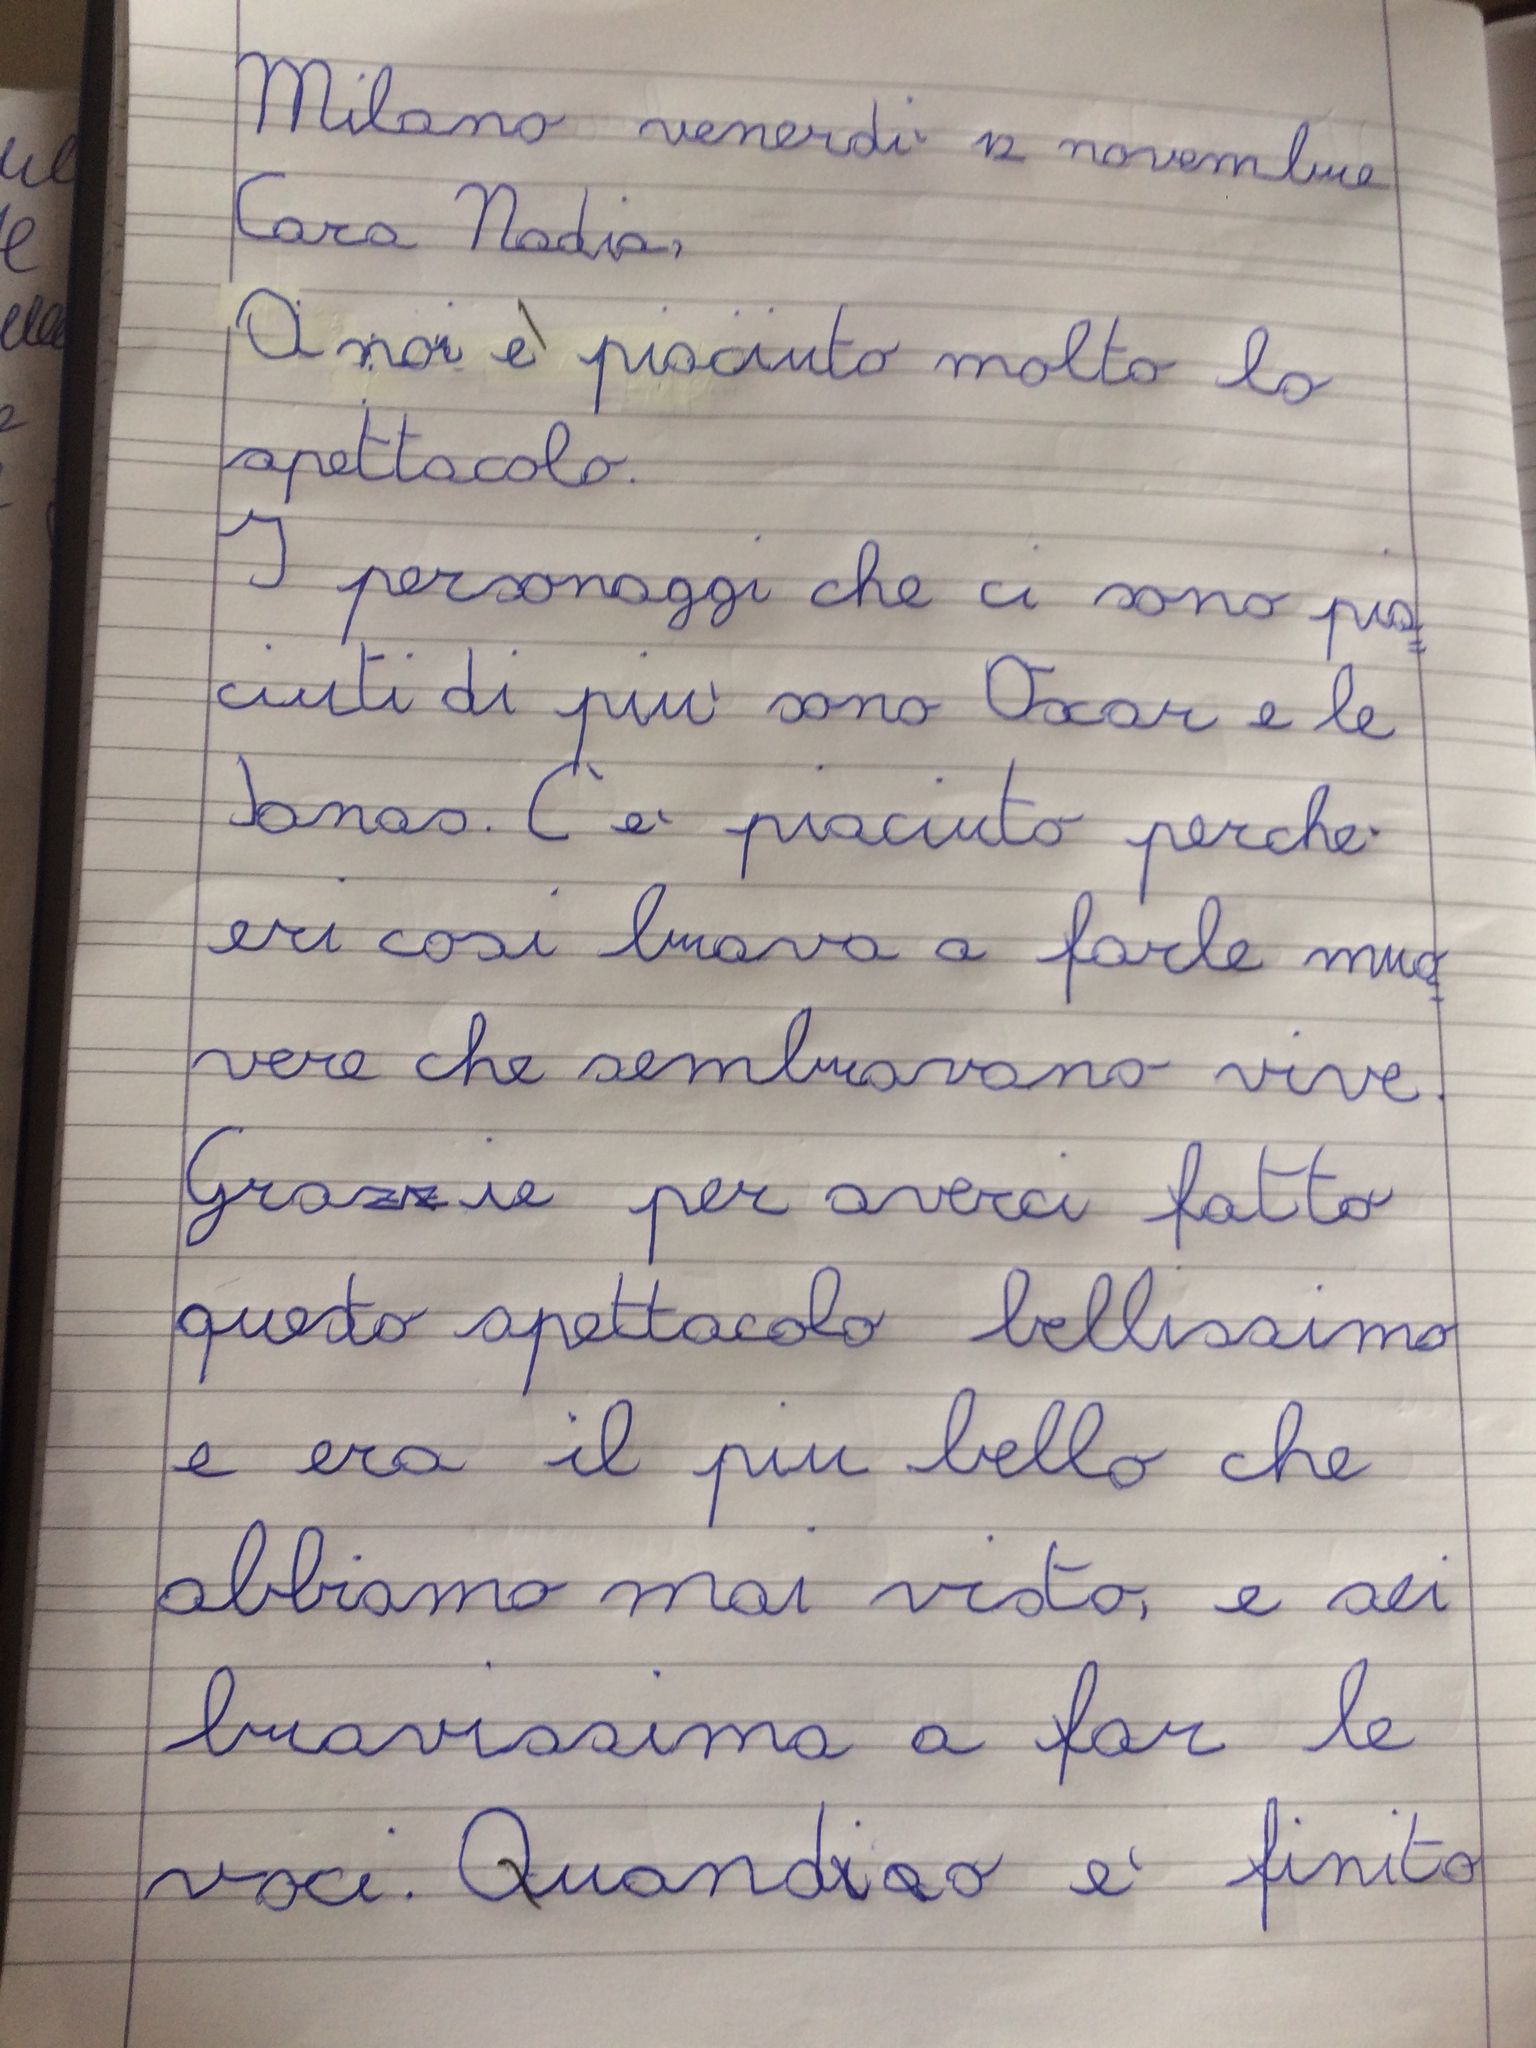 Milano venerdì 12 novembre
Cara Nadia,
A noi è piaciuto molto lo
spettacolo.
I personaggi che ci sono pia=
ciuti di più sono Oscar e le
Janas. C'è piaciuto perchè
eri cosi brava a farle muo=
vere che sembravano vive.
Grazie per averci fatto
questo spettacolo bellissimo
e era il piu bello che
abbiamo mai visto, e sei
bravissima a far le
voci. Quando è finito